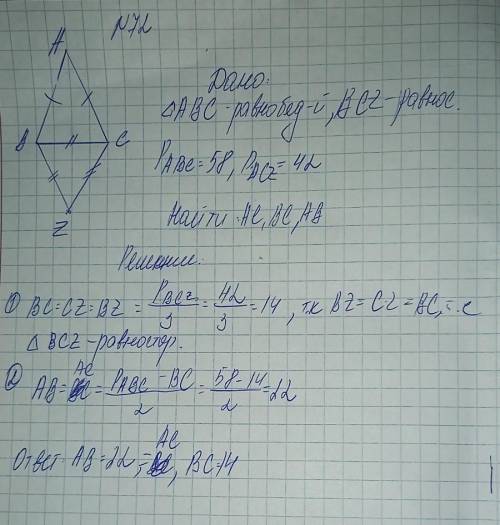 N72
A
B
C
Z
Дано:
△ABC-равнобед-й, BCZ-равнос.
P ABC = 58, P BCZ = 42
Найти: AC, BC, AB
Решение:
① BC=CZ=BZ = P BCZ / 3 = 42 / 3 = 14, т.к BZ=CZ=BC, т.е
△ BCZ-равностор.
② AB = AC = P ABC - BC / 2 = 58-14 / 2 = 22
Ответ AB=22, = AC, BC=14